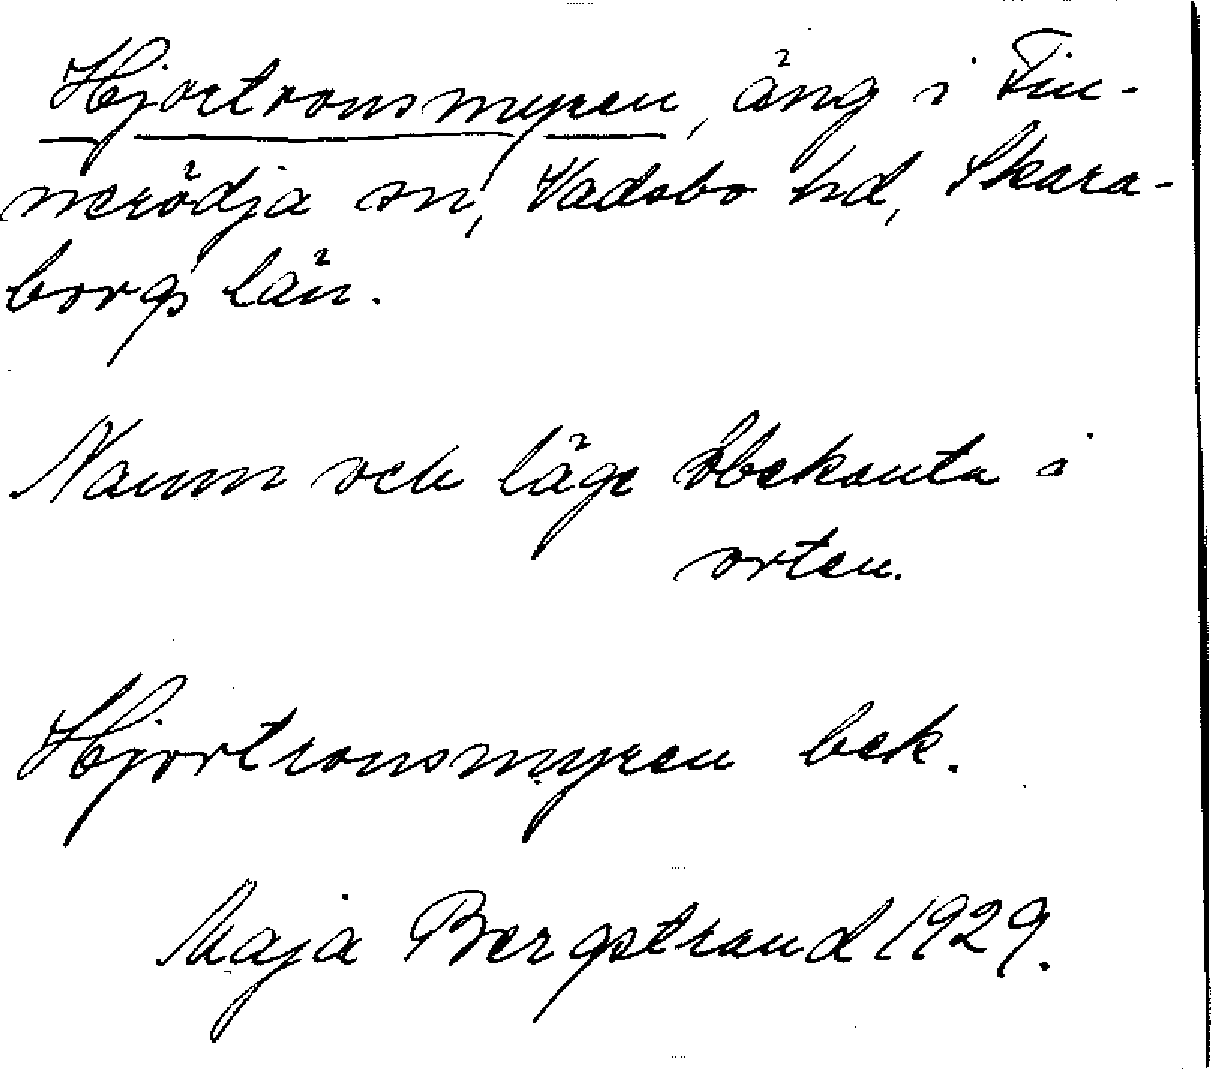 Hjortronsmyren, äng i Fin-
nerödja sn, Vadsbo hd, Skara-
borgs län.
Namn och läge obekanta i
orten.
Hjortronsmyren bek.
Maja Bergstrand 1929.